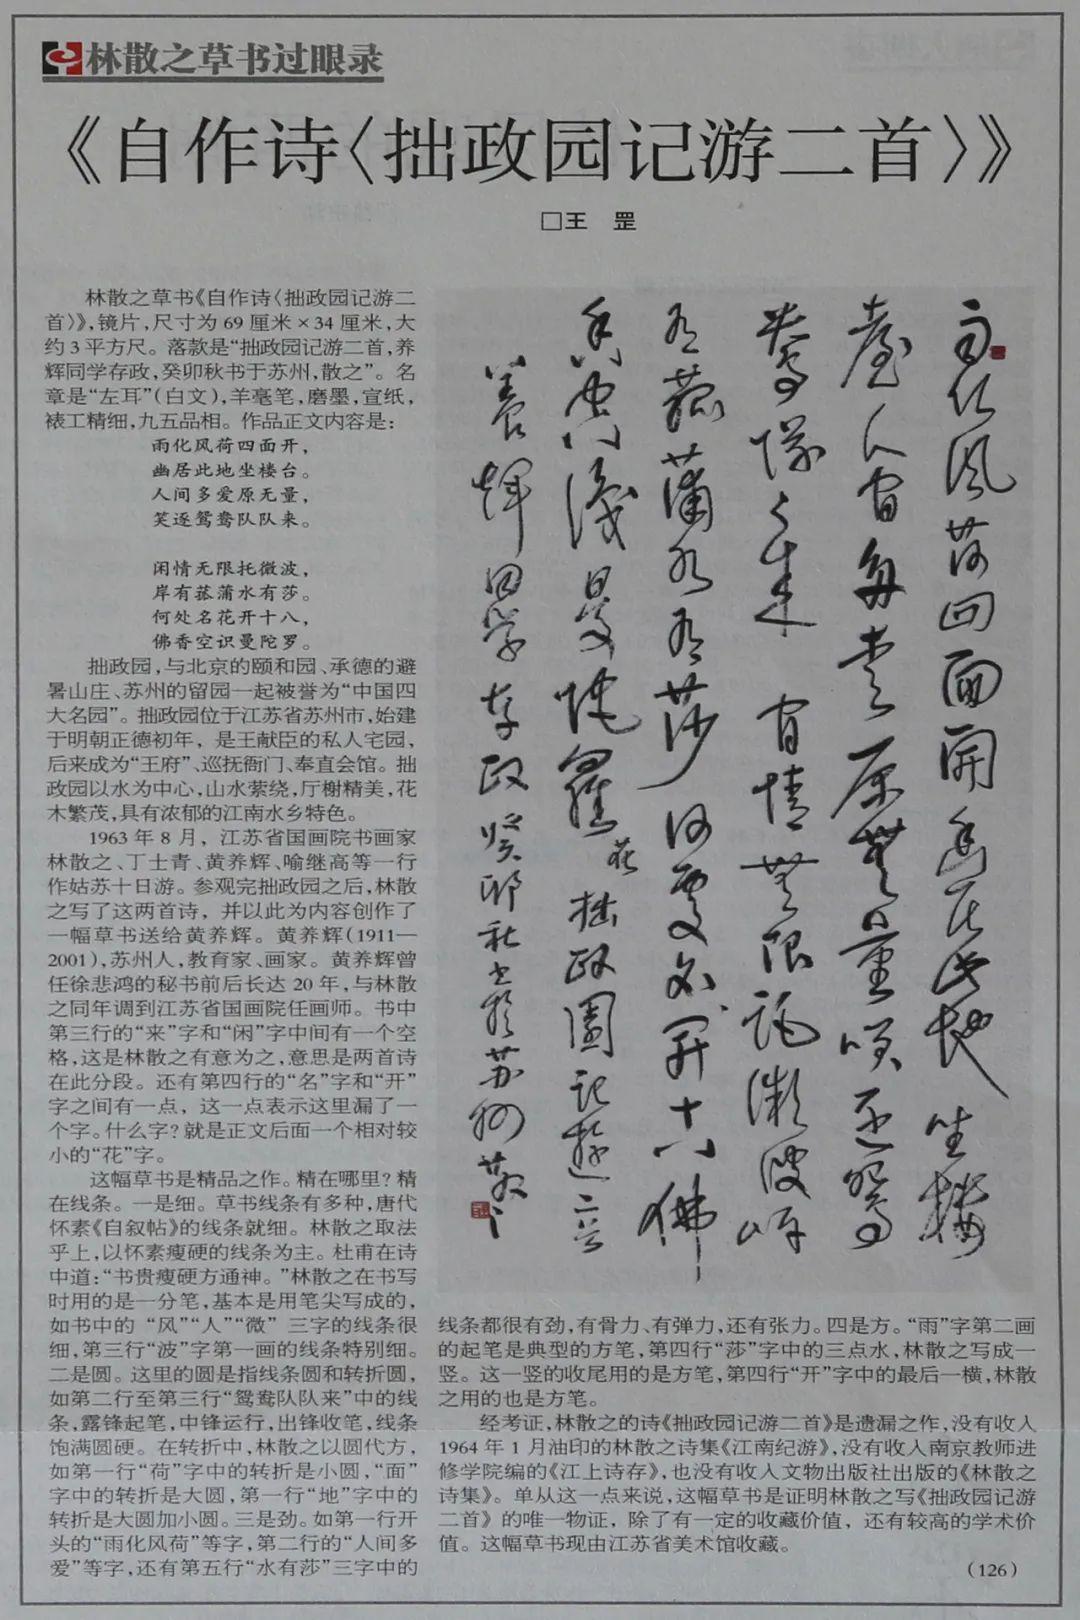 林散之草书过眼录
《自作诗〈拙政园记游二首〉》
□王 罡
林散之草书《自作诗〈拙政园记游二
首〉》,镜片,尺寸为69厘米×34厘米,大
约3平方尺。落款是“拙政园记游二首,养
辉同学存政,癸卯秋书于苏州,散之”。名
章是“左耳”(白文),羊毫笔,磨墨,宣纸,
裱工精细,九五品相。作品正文内容是:
雨化风荷四面开,
幽居此地坐楼台。
人间多爱原无量,
笑逐鸳鸯队队来。
闲情无限托微波,
岸有菰蒲水有莎。
何处名花开十八,
佛香空识曼陀罗。
拙政园,与北京的颐和园、承德的避
暑山庄、苏州的留园一起被誉为“中国四
大名园”。拙政园位于江苏省苏州市,始建
于明朝正德初年,是王献臣的私人宅园,
后来成为“王府”、巡抚衙门、奉直会馆。拙
政园以水为中心,山水萦绕,厅榭精美,花
木繁茂,具有浓郁的江南水乡特色。
1963年8月,江苏省国画院书画家
林散之、丁士青、黄养辉、喻继高等一行
作姑苏十日游。参观完拙政园之后,林散
之写了这两首诗,并以此为内容创作了
一幅草书送给黄养辉。黄养辉(1911—
2001),苏州人,教育家、画家。黄养辉曾
任徐悲鸿的秘书前后长达20年,与林散
之同年调到江苏省国画院任画师。书中
第三行的“来”字和“闲”字中间有一个空
格,这是林散之有意为之,意思是两首诗
在此分段。还有第四行的“名”字和“开”
字之间有一点,这一点表示这里漏了一
个字。什么字?就是正文后面一个相对较
小的“花”字。
这幅草书是精品之作。精在哪里?精
在线条。一是细。草书线条有多种,唐代
怀素《自叙帖》的线条就细。林散之取法
乎上,以怀素瘦硬的线条为主。杜甫在诗
中道:“书贵瘦硬方通神。”林散之在书写
时用的是一分笔,基本是用笔尖写成的,
如书中的“风”“人”“微”三字的线条很
细,第三行“波”字第一画的线条特别细。
二是圆。这里的圆是指线条圆和转折圆,
如第二行至第三行“鸳鸯队队来”中的线
条,露锋起笔,中锋运行,出锋收笔,线条
饱满圆硬。在转折中,林散之以圆代方,
如第一行“荷”字中的转折是小圆,“面”
字中的转折是大圆,第一行“地”字中的
转折是大圆加小圆。三是劲。如第一行开
头的“雨化风荷”等字,第二行的“人间多
爱”等字,还有第五行“水有莎”三字中的
雨化風荷四面開幽居此地坐樓
臺人間多愛原無量笑逐鴛
鴦隊隊來 閒情無限託微波岸
有菰蒲水有莎何處名開十八佛
香空識曼陀羅花 拙政園記遊二首
養輝同學存政癸卯秋書於蘇州散之
线条都很有劲,有骨力、有弹力,还有张力。四是方。“雨”字第二画
的起笔是典型的方笔,第四行“莎”字中的三点水,林散之写成一
竖。这一竖的收尾用的是方笔,第四行“开”字中的最后一横,林散
之用的也是方笔。
经考证,林散之的诗《拙政园记游二首》是遗漏之作,没有收入
1964年1月油印的林散之诗集《江南纪游》,没有收入南京教师进
修学院编的《江上诗存》,也没有收入文物出版社出版的《林散之
诗集》。单从这一点来说,这幅草书是证明林散之写《拙政园记游
二首》的唯一物证,除了有一定的收藏价值,还有较高的学术价
值。这幅草书现由江苏省美术馆收藏。
(126)